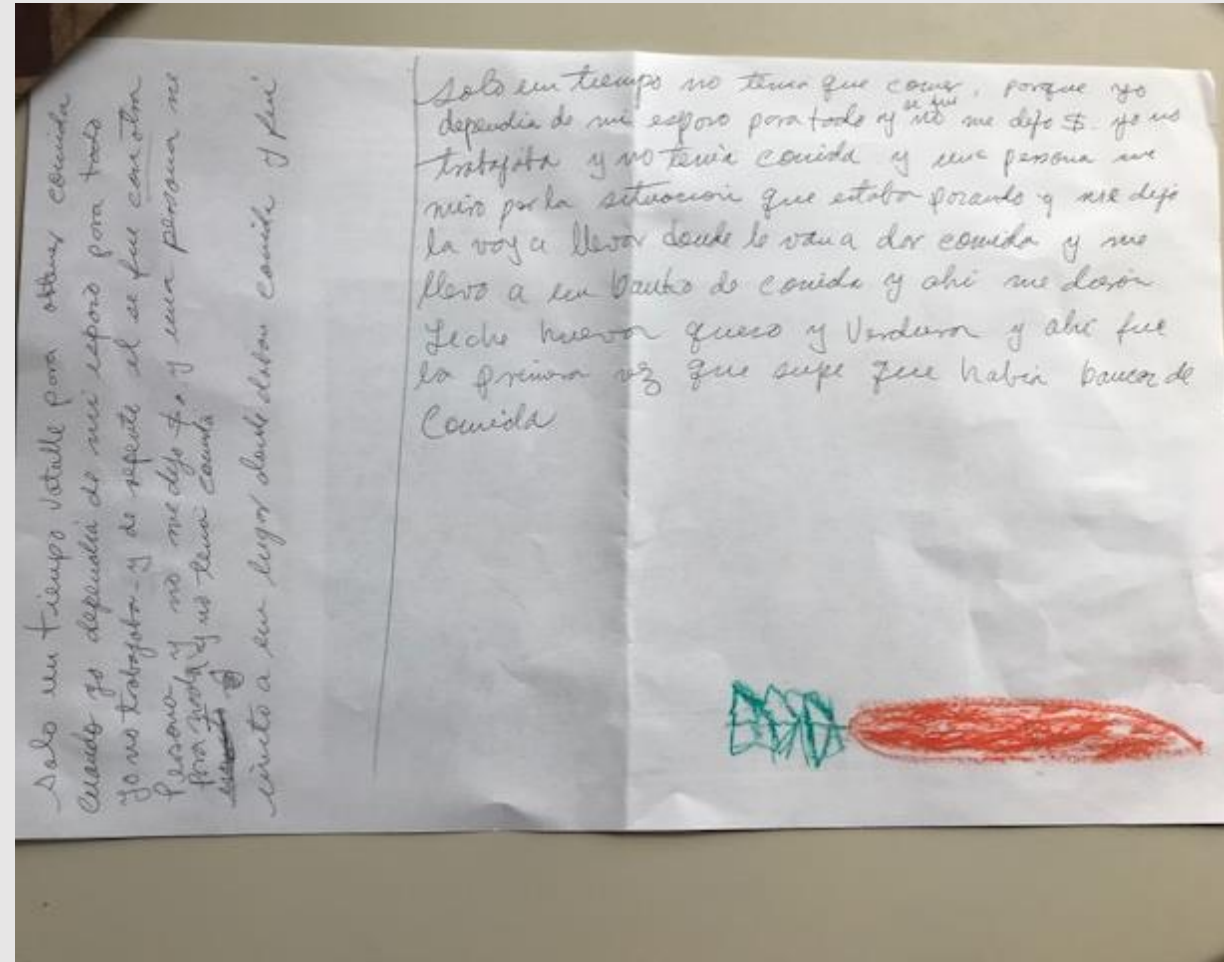 Solo un tiempo vatalle para obtener comida
cuando yo dependia de mi esposo para todo
yo no trabajaba - y de repente el se fue con otra
Persona y no me dejo $. y una persona me
para nada y no tenia comida
invito a un lugar donde daban comida y fui
Solo un tiempo no tenia que comer, porque yo
dependia de mi esposo para todo y se fue no me dejo $. yo no
trabajaba y no tenia comida y una persona me
miro por la situacion que estaba pasando y me dijo
la voy a llevar donde le van a dar comida y me
llevo a un banko de comida y ahi me dieron
Leche huevos queso y Verduras y ahi fue
la primera vez que supe que habia bancos de
Comida